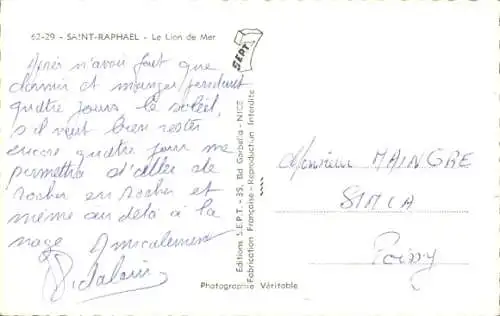 62-29 - SAINT-RAPHAEL - Le Lion de Mer
Après n'avoir fait que
dormir et manger pendant
quatre jours le soleil,
s'il veut bien rester
encore quatre jours me
permettra d'aller de
rocher en rocher et
même au delà à la
nage. Amicalement
SEPT
Editions S.E.P.T. - 39, Bld Gorbella - NICE
Fabrication Française - Reproduction Interdite
Photographie Véritable
Monsieur MAINGRE
SIMCA
Poissy